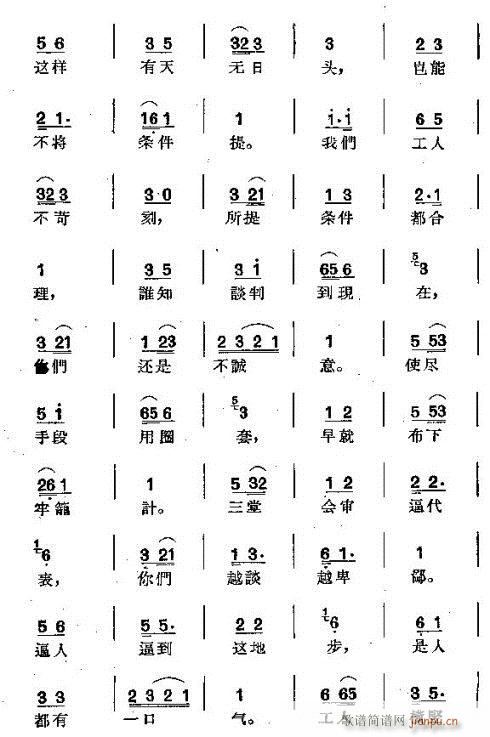 5 6 | 3 5 | 32 3 | 3 | 2 3
这样 有天 无日 头， 岂能
2 1· | 16 1 | 1 | i·i | 6 5
不将 条件 提。 我們 工人
32 3 | 3 0 | 3 21 | 1 3 | 2·1
不苛 刻， 所提 条件 都合
1 | 3 5 | 3 i | 65 6 | 5 3
理， 誰知 談判 到現 在，
3 21 | 1 23 | 2 3 2 1 | 1 | 5 53
你們 还是 不誠 意。 使尽
5 i | 65 6 | 5 3 | 1 2 | 5 53
手段 用圈 套， 早就 布下
26 1 | 1 | 5 32 | 1 2 | 2 2·
牢籠 計。 三堂 会审 逼代
1 6 | 3 21 | 1 3· | 6 1· | 1
表， 你們 越談 越卑 鄙。
5 6 | 5 5· | 2 2 | 1 6 | 6 1
逼人 逼到 这地 步， 是人
3 3 | 2 3 2 1 | 1 | 6 65 | 3 5·
都有 一口 气。 工人
歌谱简谱网
jianpu.cn